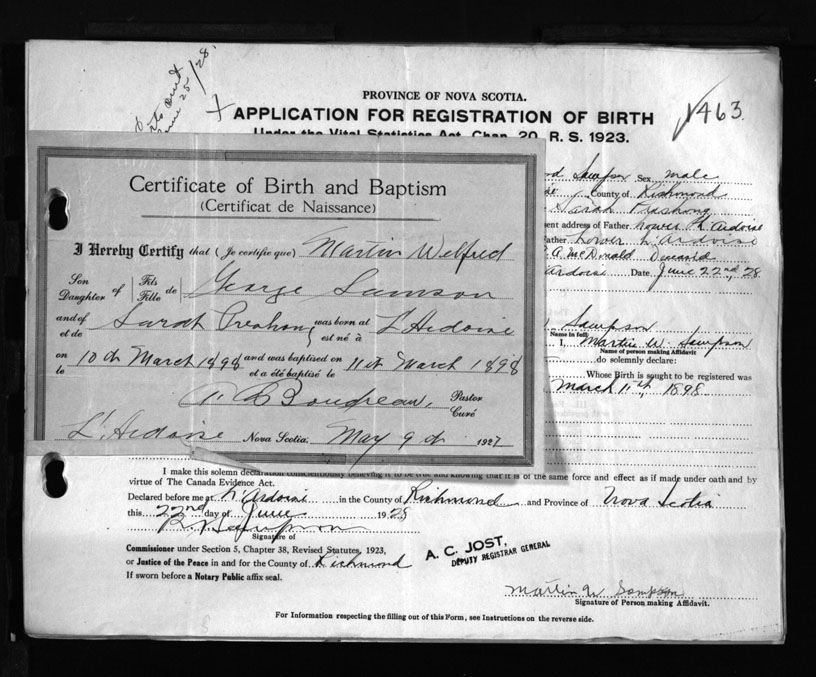 Certs Sent
June 25/28
PROVINCE OF NOVA SCOTIA.
463
APPLICATION FOR REGISTRATION OF BIRTH
Under the Vital Statistics Act, Chap. 20, R. S. 1923.
Sampson Sex male
County of Richmond
Sarah
sent address of Father Lower L'Ardoise
Father Lower L'Ardoise
A. McDonald Deceased
Ardoise Date June 22nd, 28
Certificate of Birth and Baptism
(Certificat de Naissance)
I Hereby Certify that (Je certifie que) Martin Welfred
Son Daughter of Fils Fille de George Samson
and of et de Sarah was born at est né à L'Ardoise
on le 10th March 1898 and was baptised on et a été baptisé le 11th March 1898
A. C. Boudreau, Pastor Curé
L'Ardoise Nova Scotia. May 9th 1927
Sampson
Name in full
I, Martin W. Sampson
Name of person making Affidavit
do solemnly declare:
Whose Birth is sought to be registered was
March 11th, 1898
I make this solemn declaration conscientiously believing it to be true and knowing that it is of the same force and effect as if made under oath and by
virtue of The Canada Evidence Act.
Declared before me at L'Ardoise in the County of Richmond and Province of Nova Scotia
this 22nd day of June 1928
Sampson
Signature of
Commissioner under Section 5, Chapter 38, Revised Statutes, 1923,
or Justice of the Peace in and for the County of Richmond
If sworn before a Notary Public affix seal.
A. C. JOST,
DEPUTY REGISTRAR GENERAL
Martin W Sampson
Signature of Person making Affidavit.
For Information respecting the filling out of this Form, see Instructions on the reverse side.